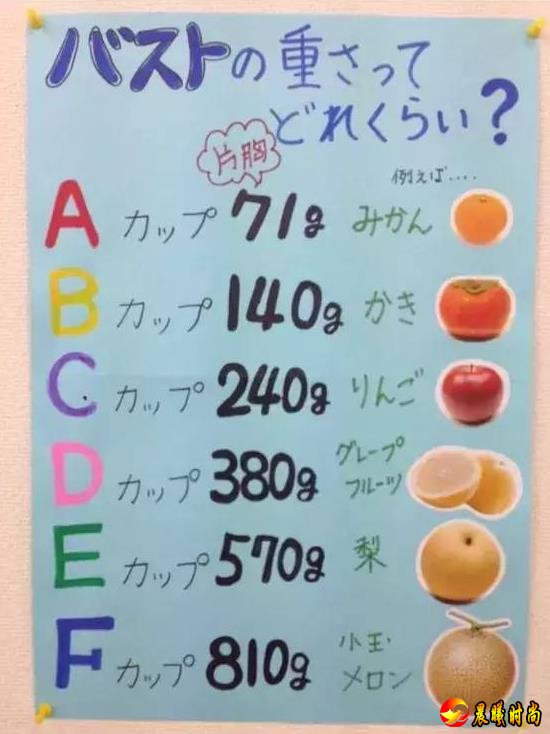 バストの重さって
どれくらい？
片胸
例えば‥‥
A カップ 71g みかん
B カップ 140g かき
C カップ 240g りんご
D カップ 380g グレープ
フルーツ
E カップ 570g 梨
F カップ 810g 小玉
メロン
晨曦时尚